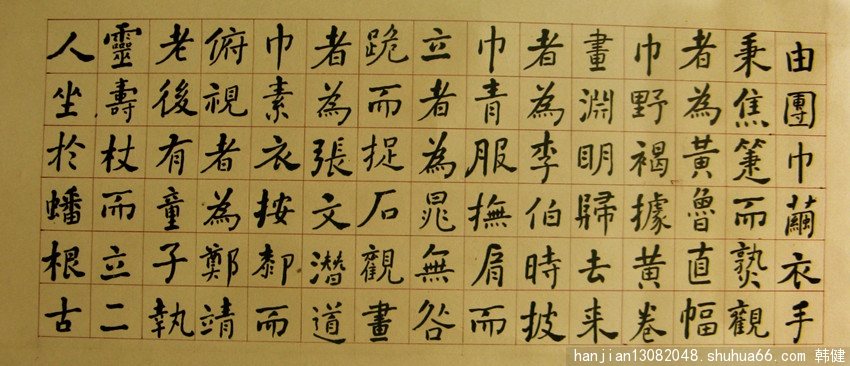 由團巾繭衣手
秉焦箑而熟觀
者為黃魯直幅
巾野褐據黃卷
畫淵明歸去来
者為李伯時披
巾青服撫肩而
立者為晁無咎
跪而捉石觀畫
者為張文潛道
巾素衣按厀而
俯視者為鄭靖
老後有童子執
靈壽杖而立二
人坐於蟠根古
hanjian13082048.shuhua66.com 韩健